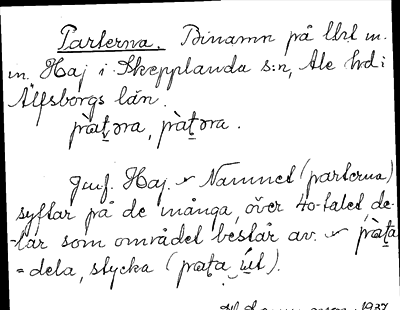 Parterna. Binamn på lht m.
m. Haj i Skepplanda s:n, Ale hd i
Älfsborgs län.
pràt̠əra, pràt̠əra.
Jmf. Haj. Namnet (parterna)
syftar på de många, över 40-talet de-
lar som området består av. pràt̠a
= dela, stycka (prat̠a út).
1937